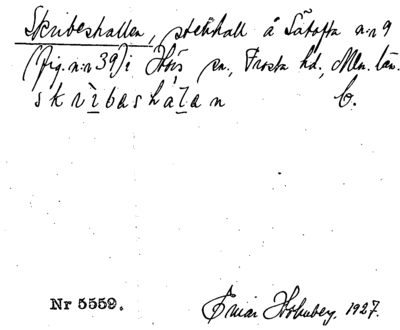 Skribeshallen, stenhall å Sätofta n:r 9
(fig. n:r 39) i Hörs sn., Frosta hd., Mlm. län.
skribashalan b.
Nr 5559. Einar Holmberg. 1927.